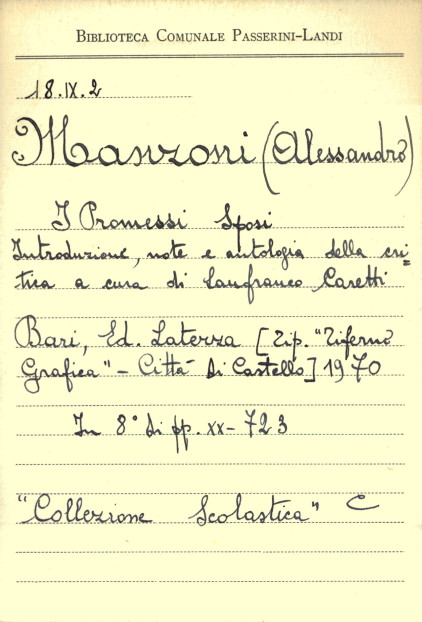 BIBLIOTECA COMUNALE PASSERINI-LANDI
18.IX.2
Manzoni (Alessandro)
I Promessi Sposi
Introduzione, note e antologia della cri=
tica a cura di Lanfranco Caretti
Bari, Ed. Laterza [Tip. "Tiferno
Grafica" - Città di Castello] 1970
In 8° di pp. XX-723
"Collezione Scolastica" C